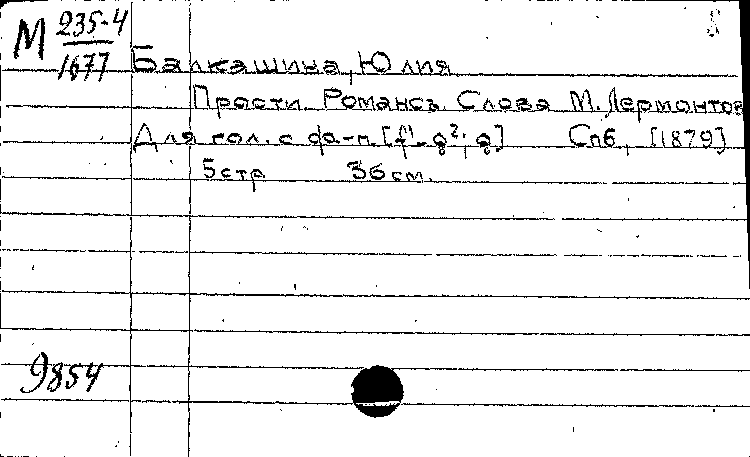 М 235-4
1677
Балкашина, Юлия
Прости. Романсъ. Слова М. Лермонтов
Для гол. с фа-п. [f¹-g²; g] Спб, [1879]
5 стр 36 см.
9854